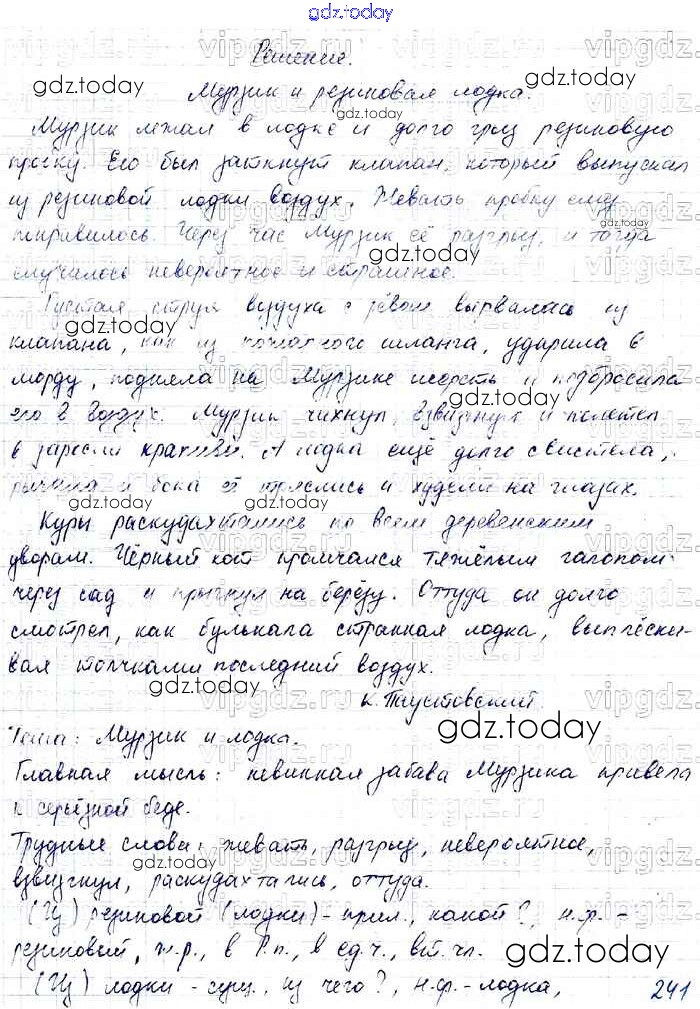 gdz.today
Решение.
Мурзик и резиновая лодка.
Мурзик лежал в лодке и долго грыз резиновую
пробку. Ею был заткнут клапан, который выпускал
из резиновой лодки воздух. Жевать пробку ему
понравилось. Через час Мурзик её разгрыз, и тогда
случилось невероятное и страшное.
Густая струя воздуха с рёвом вырвалась из
клапана, как из пожарного шланга, ударила в
морду, подняла на Мурзике шерсть и подбросила
его в воздух. Мурзик чихнул, взвизгнул и полетел
в заросли крапивы. А лодка ещё долго свистела,
рычала и бока её тряслись и худели на глазах.
Куры раскудахтались по всем деревенским
дворам. Чёрный кот промчался тяжёлым галопом
через сад и прыгнул на берёзу. Оттуда он долго
смотрел, как булькала странная лодка, выплёски-
вая толчками последний воздух.
К. Паустовский.
Тема: Мурзик и лодка.
Главная мысль: невинная забава Мурзика привела
к серьёзной беде.
Трудные слова: жевать, разгрыз, невероятное,
взвизгнул, раскудахтались, оттуда.
(Из) резиновой (лодки) - прил., какой?, н.ф. -
резиновый, ж.р., в Р.п., в ед.ч., вт. чл.
(Из) лодки - сущ., из чего?, н.ф. - лодка,
241